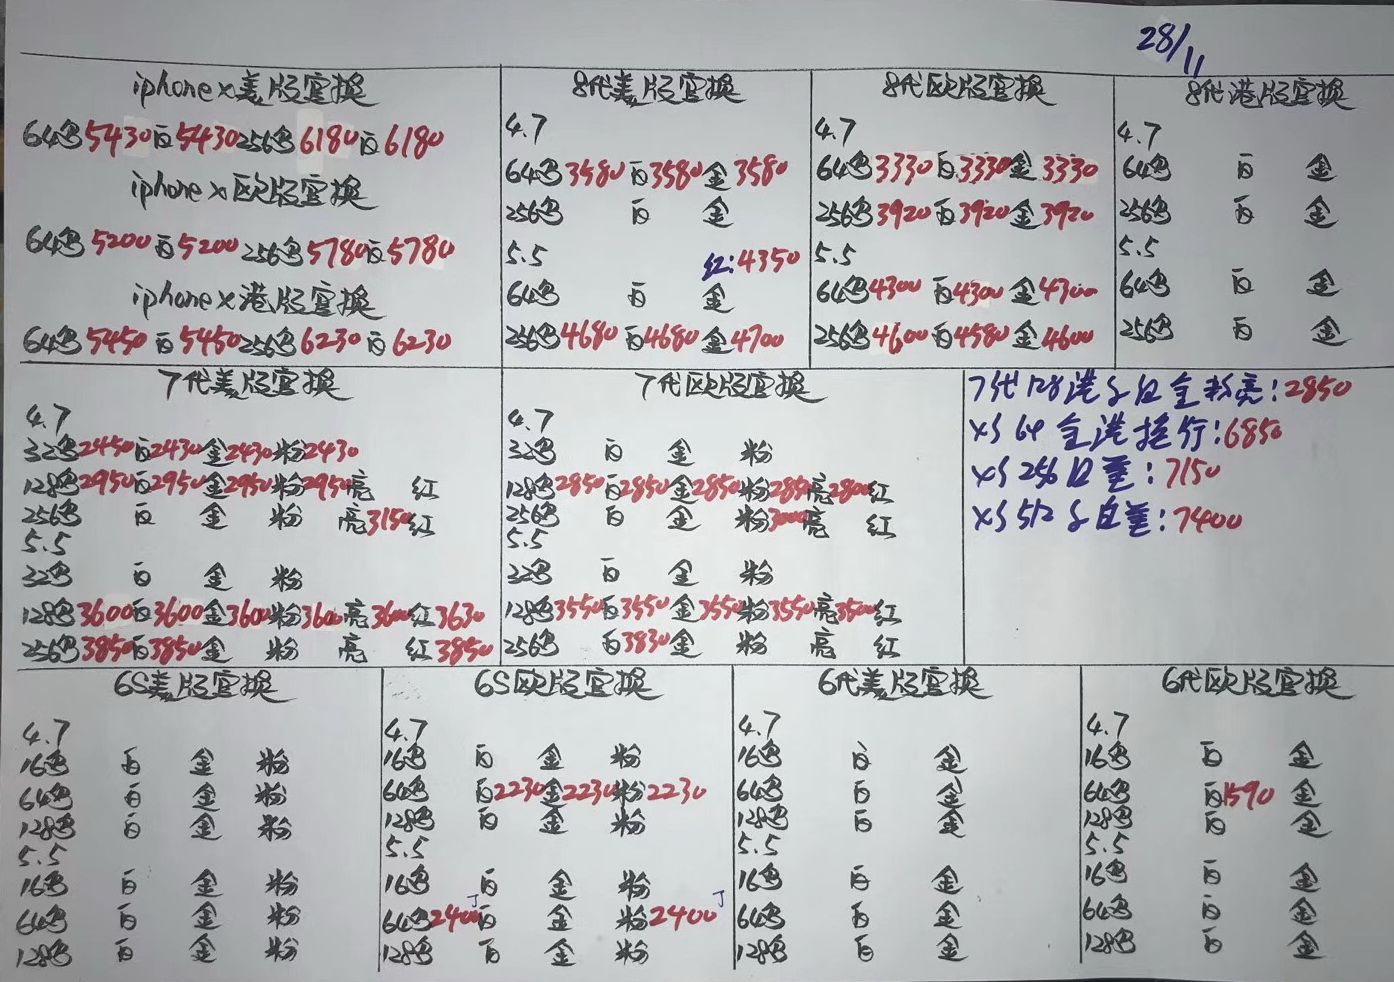 28/11
iphone x美版官换
64G5430白5430256G6180白6180
iphone x欧版官换
64G5200白5200256G5780白5780
iphone x港版官换
64G5450白5450256G6230白6230
8代美版官换
4.7
64G3580白3580金3580
256G 白 金
5.5 红:4350
64G 白 金
256G4680白4680金4700
8代欧版官换
4.7
64G3330白3330金3330
256G3920白3920金3920
5.5
64G4300白4300金4300
256G4600白4580金4600
8代港版官换
4.7
64G 白 金
256G 白 金
5.5
64G 白 金
256G 白 金
7代美版官换
4.7
32G2450白2430金2430粉2430
128G2950白2950金2950粉2950亮 红
256G 白 金 粉 亮3150红
5.5
32G 白 金 粉
128G3600白3600金3600粉3600亮3600红3630
256G3850白3850金 粉 亮 红3850
7代欧版官换
4.7
32G 白 金 粉
128G2850白2850金2850粉2850亮2800红
256G 白 金 粉3000亮 红
5.5
32G 白 金 粉
128G3550白3550金3550粉3550亮3500红
256G 白3830金 粉 亮 红
7代128港 白金粉亮:2850
XS 64 金港换行:6850
XS 256白 :7150
XS 512 白 :7400
6S美版官换
4.7
16G 白 金 粉
64G 白 金 粉
128G 白 金 粉
5.5
16G 白 金 粉
64G 白 金 粉
128G 白 金 粉
6S欧版官换
4.7
16G 白 金 粉
64G 白2230金2230粉2230
128G 白 金 粉
5.5
16G 白 金 粉
64G2400白 金 粉2400
128G 白 金 粉
6代美版官换
4.7
16G 白 金
64G 白 金
128G 白 金
5.5
16G 白 金
64G 白 金
128G 白 金
6代欧版官换
4.7
16G 白 金
64G 白1590金
128G 白 金
5.5
16G 白 金
64G 白 金
128G 白 金